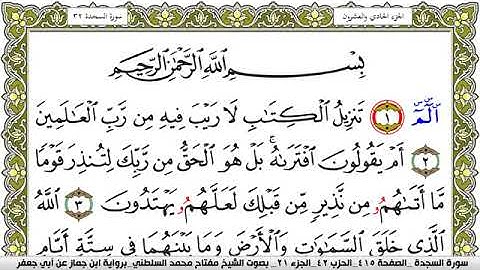 سورة السجدة ٣٢
الجزء الحادي والعشرون
بِسْمِ اللَّهِ الرَّحْمَٰنِ الرَّحِيمِ
الٓمٓ ١ تَنزِيلُ الْكِتَابِ لَا رَيْبَ فِيهِ مِن رَّبِّ الْعَالَمِينَ
٢ أَمْ يَقُولُونَ افْتَرَاهُ بَلْ هُوَ الْحَقُّ مِن رَّبِّكَ لِتُنذِرَ قَوْمًا
مَّا أَتَاهُمُ مِن نَّذِيرٍ مِّن قَبْلِكَ لَعَلَّهُمُ يَهْتَدُونَ ٣ اللَّهُ
الَّذِي خَلَقَ السَّمَاوَاتِ وَالْأَرْضَ وَمَا بَيْنَهُمَا فِي سِتَّةِ أَيَّامٍ
سورة السجدة _الصفحة ٤١٥_الحزب ٤٢_الجزء ٢١_ بصوت الشيخ مفتاح محمد السلطني_برواية ابن جماز عن أبي جعفر